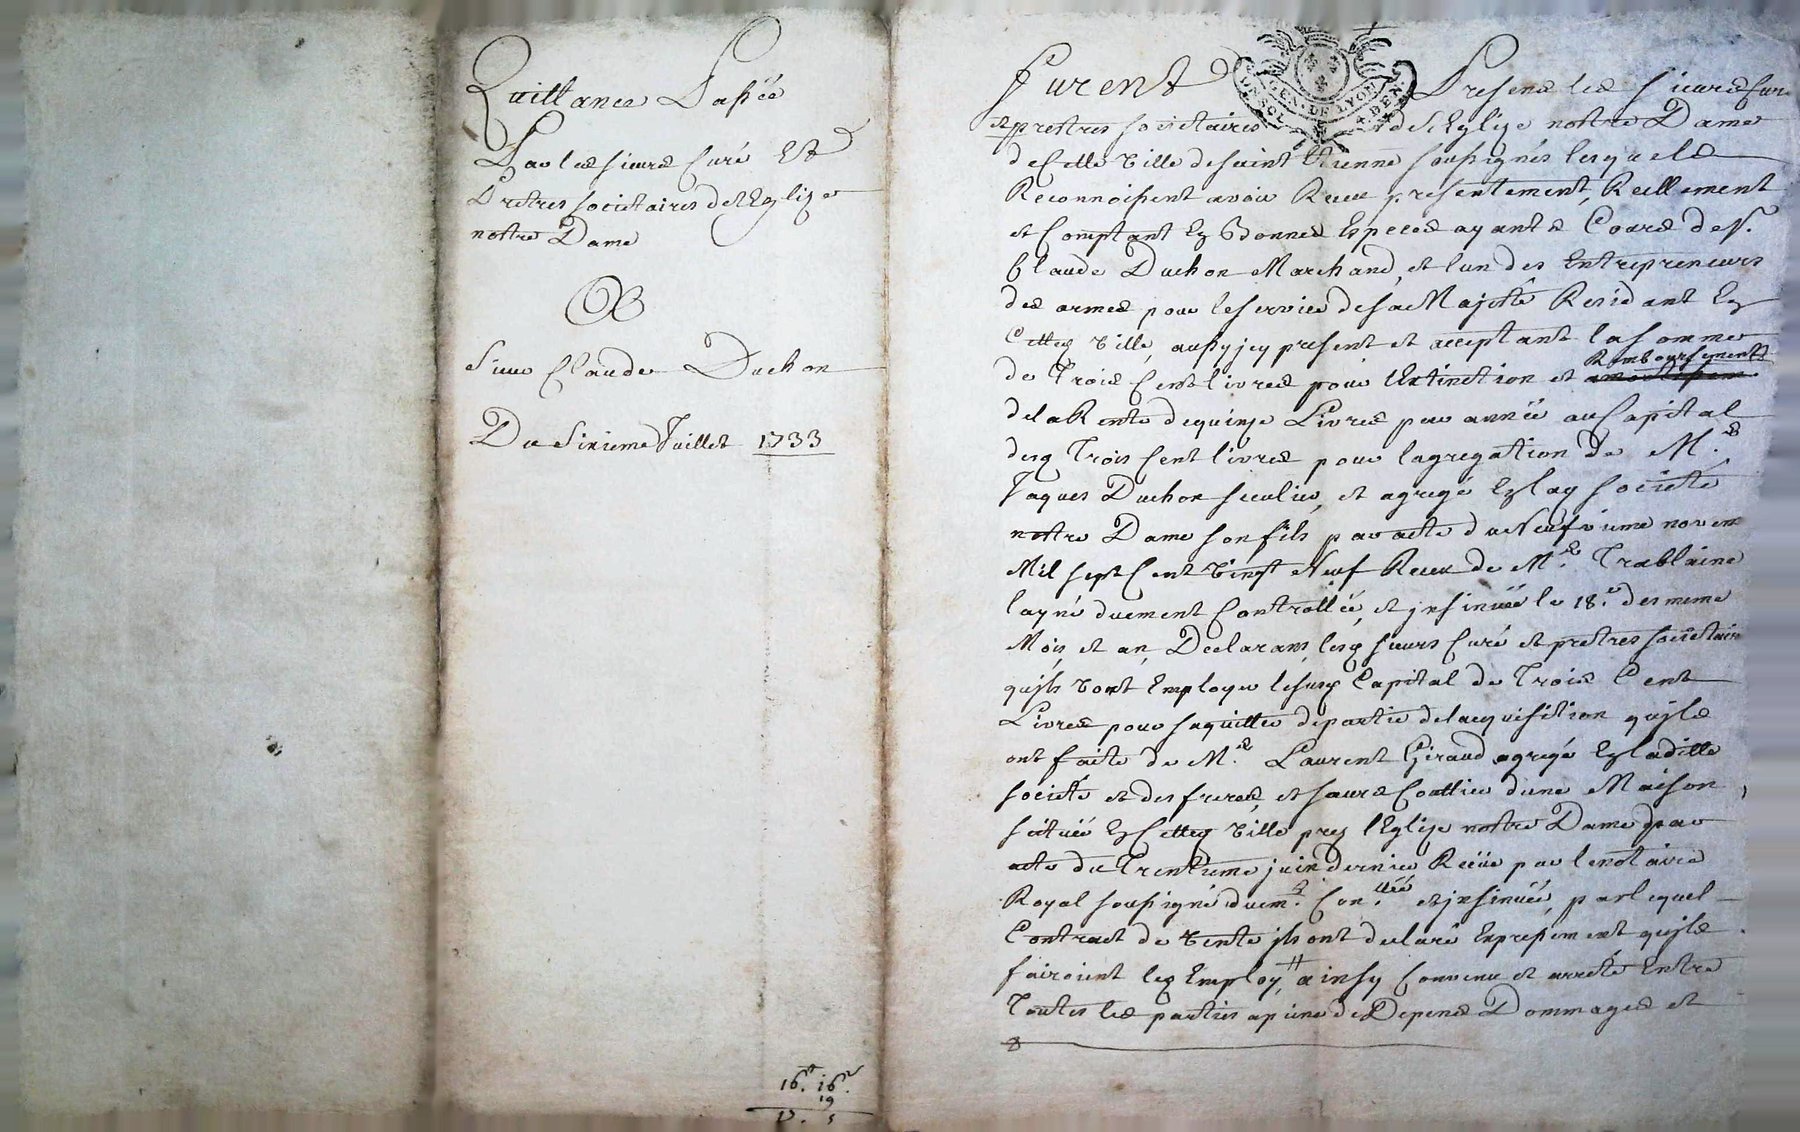 Quittance Passée
Par les sieurs Curé Et
Pretres societaires de l'Eglize
notre Dame
A
Sieur Claude Duchon
Du Sixieme Juillet 1733
16. 16
19
17. 5
GEN. DE LYON
Furent Presens les sieurs Curé
et prestres societaires de l'Eglize notre Dame
de Cette Ville de saint Etienne soussignés lesquels
Reconnoissent avoir Receu presentement, Reellement
et Comptant Eg Bonnes Especes ayants Cours de sr.
Claude Duchon Marchand, et lun des Entrepreneurs
des armes pour le service de sa Majesté Residant Eg
Cetteg Ville, aussy jcy present et acceptant la somme
Remboursement
de Trois Cent livres pour l'Extinction et
de la Rente de quinze Livres par année au Capital
desg Trois Cent livres pour lagregation de Mre.
Jaques Duchon seculier, et agregé Eg lag societé
notre Dame son fils par acte du Neufvieme novem
Mil sept Cent Vingt Neuf Receu de Me. Trablaine
layné duement Controllée, et jnsinuée le 18e. des meme
Mois et an, Declarans lesg sieurs Curé et prestres societaires
qu'jls vont Employer lesusg Capital de Trois Cent
Livres pour saquitter de partie de lacquisition qu'jls
ont faite de Mre. Laurent Giraud agregé Eg laditte
societé et des freres et sœurs Couttier d'une Maison
scituée Eg Cetteg Ville preg l'Eglize notre Dame par
acte du Trentieme juin dernier Reçüe par le notaire
Royal soussigné duemt. Conllée. et jnsinuée, par lequel
Contract de Vente jls ont declaré Expressement qu'jls
fairoient leg Employ, ainsy Convenu et arreté Entre
Toutes les parties a peine de Depens Dommages et